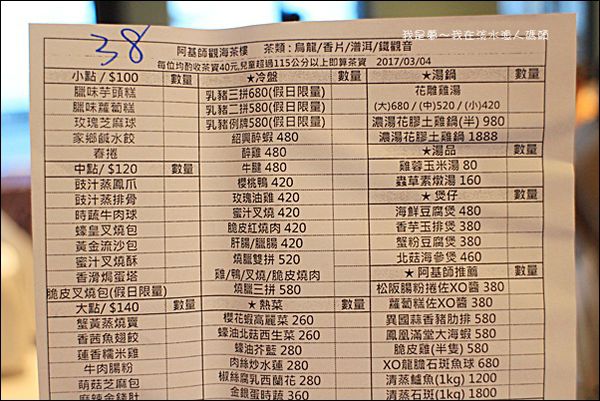 我是勳～我在淡水漁人碼頭
38
阿基師觀海茶樓 茶類：烏龍/香片/潽洱/鐵觀音
每位均酌收茶資40元,兒童超過115公分以上即算茶資 2017/03/04
小點/$100 數量
臘味芋頭糕
臘味蘿蔔糕
玫瑰芝麻球
家鄉鹹水餃
春捲
中點/$120 數量
豉汁蒸鳳爪
豉汁蒸排骨
時蔬牛肉球
蠔皇叉燒包
黃金流沙包
蜜汁叉燒酥
香滑焗蛋塔
脆皮叉燒包(假日限量)
大點/$140 數量
蟹黃蒸燒賣
香茜魚翅餃
蓮香糯米雞
牛肉腸粉
萌菇芝麻包
麻辣金錢肚
★冷盤 數量
乳豬三拼680(假日限量)
乳豬二拼580(假日限量)
乳豬例牌580(假日限量)
紹興醉蝦 480
醉雞 480
牛腱 480
櫻桃鴨 420
玫瑰油雞 420
蜜汁叉燒 420
脆皮紅燒肉 420
肝腸/臘腸 420
燒臘雙拼 520
雞/鴨/叉燒/脆皮燒肉
燒臘三拼 580
★熱菜 數量
櫻花蝦高麗菜 260
蠔油北菇西生菜 280
蠔油芥藍 280
肉絲炒水蓮 280
椒絲腐乳西蘭花 280
金銀蛋時蔬 360
★湯鍋 數量
花雕雞湯
(大)680 / (中)520 / (小)420
濃湯花膠土雞鍋(半) 980
濃湯花膠土雞鍋 1888
★湯品 數量
雞蓉玉米湯 80
蟲草素燉湯 160
★煲仔 數量
海鮮豆腐煲 480
香芋玉排煲 380
蟹粉豆腐煲 380
北菇海參煲 460
★阿基師推薦 數量
松阪腸粉捲佐XO醬 380
蘿蔔糕佐XO醬 380
異國蒜香豬肋排 580
鳳凰滿堂大海蝦 580
脆皮雞(半隻) 580
XO龍膽石斑魚球 680
清蒸鱸魚(1kg) 1200
清蒸石斑(1kg) 1800